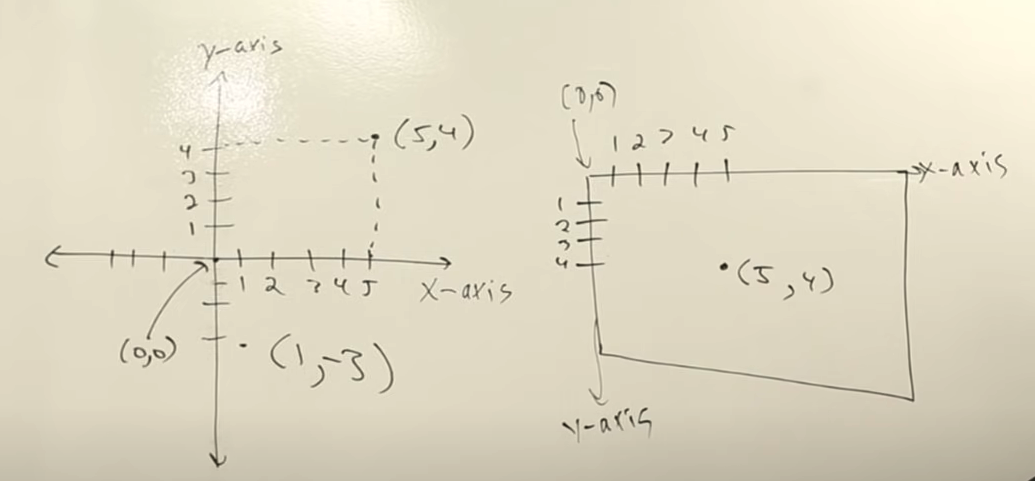 y-axis
4
3
2
1
(5,4)
1 2 3 4 5
x-axis
(0,0)
(1,-3)
(0,0)
1 2 3 4 5
x-axis
1
2
3
4
(5,4)
y-axis